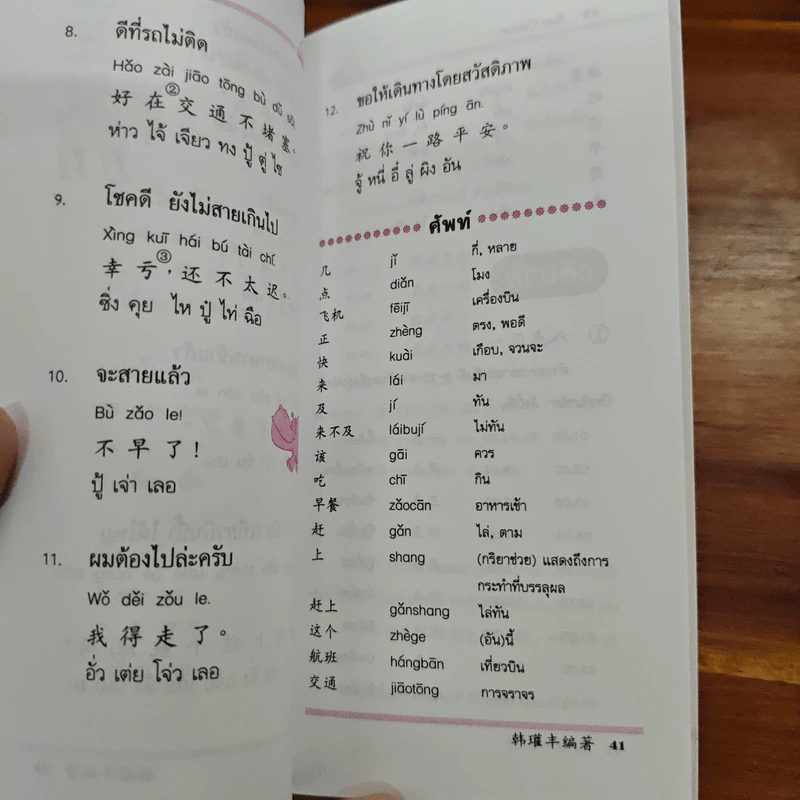 8. ดีที่รถไม่ติด
Hǎo zài jiāo tōng bù dǔ
好在②交通不堵塞。
ห่าว ไจ้ เจียว ทง ปู้ ตู่
9. โชคดี ยังไม่สายเกินไป
Xìng kuī hái bú tài chí.
幸亏③,还不太迟。
ซิ่ง คุย ไห ปู๋ ไท่ ฉือ
10. จะสายแล้ว
Bù zǎo le!
不早了!
ปู้ เจ่า เลอ
11. ผมต้องไปล่ะครับ
Wǒ děi zǒu le.
我得走了。
อั่ว เต่ย โจ่ว เลอ
12. ขอให้เดินทางโดยสวัสดิภาพ
Zhù nǐ yí lù píng ān.
祝你一路平安。
จู้ หนี่ อี๋ ลู่ ผิง อัน
ศัพท์
几 jǐ กี่, หลาย
点 diǎn โมง
飞机 fēijī เครื่องบิน
正 zhèng ตรง, พอดี
快 kuài เกือบ, จวนจะ
来 lái มา
及 jí ทัน
来不及 láibují ไม่ทัน
该 gāi ควร
吃 chī กิน
早餐 zǎocān อาหารเช้า
赶 gǎn ไล่, ตาม
上 shang (กริยาช่วย) แสดงถึงการ
กระทำที่บรรลุผล
赶上 gǎnshang ไล่ทัน
这个 zhège (อัน)นี้
航班 hángbān เที่ยวบิน
交通 jiāotōng การจราจร
韩瓘丰编著 41